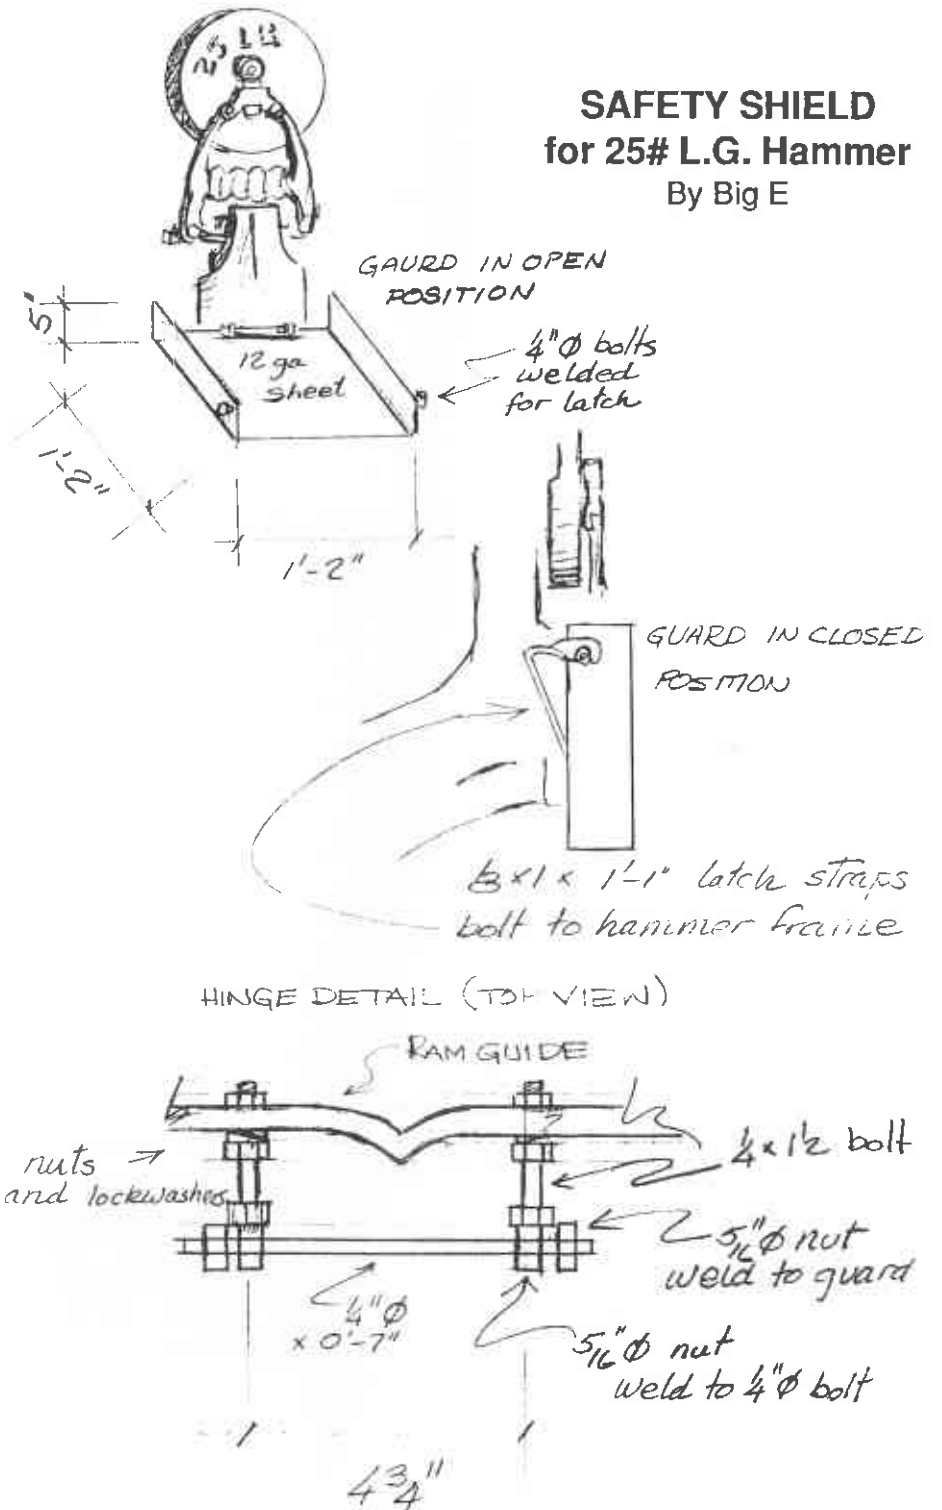 25 LG
SAFETY SHIELD
for 25# L.G. Hammer
By Big E
GAURD IN OPEN
POSITION
5"
12 ga
sheet
1/4"Ø bolts
welded
for latch
1'-2"
1'-2"
GUARD IN CLOSED
POSITION
1/8 x 1 x 1'-1" latch straps
bolt to hammer frame
HINGE DETAIL (TOP VIEW)
RAM GUIDE
nuts
and lockwashers
1/4 x 1 1/2 bolt
5/16"Ø nut
weld to guard
1/4"Ø
x 0'-7"
5/16"Ø nut
weld to 1/4"Ø bolt
4 3/4"